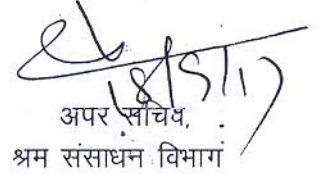 18/5/17
अपर सचिव,
श्रम संसाधन विभाग